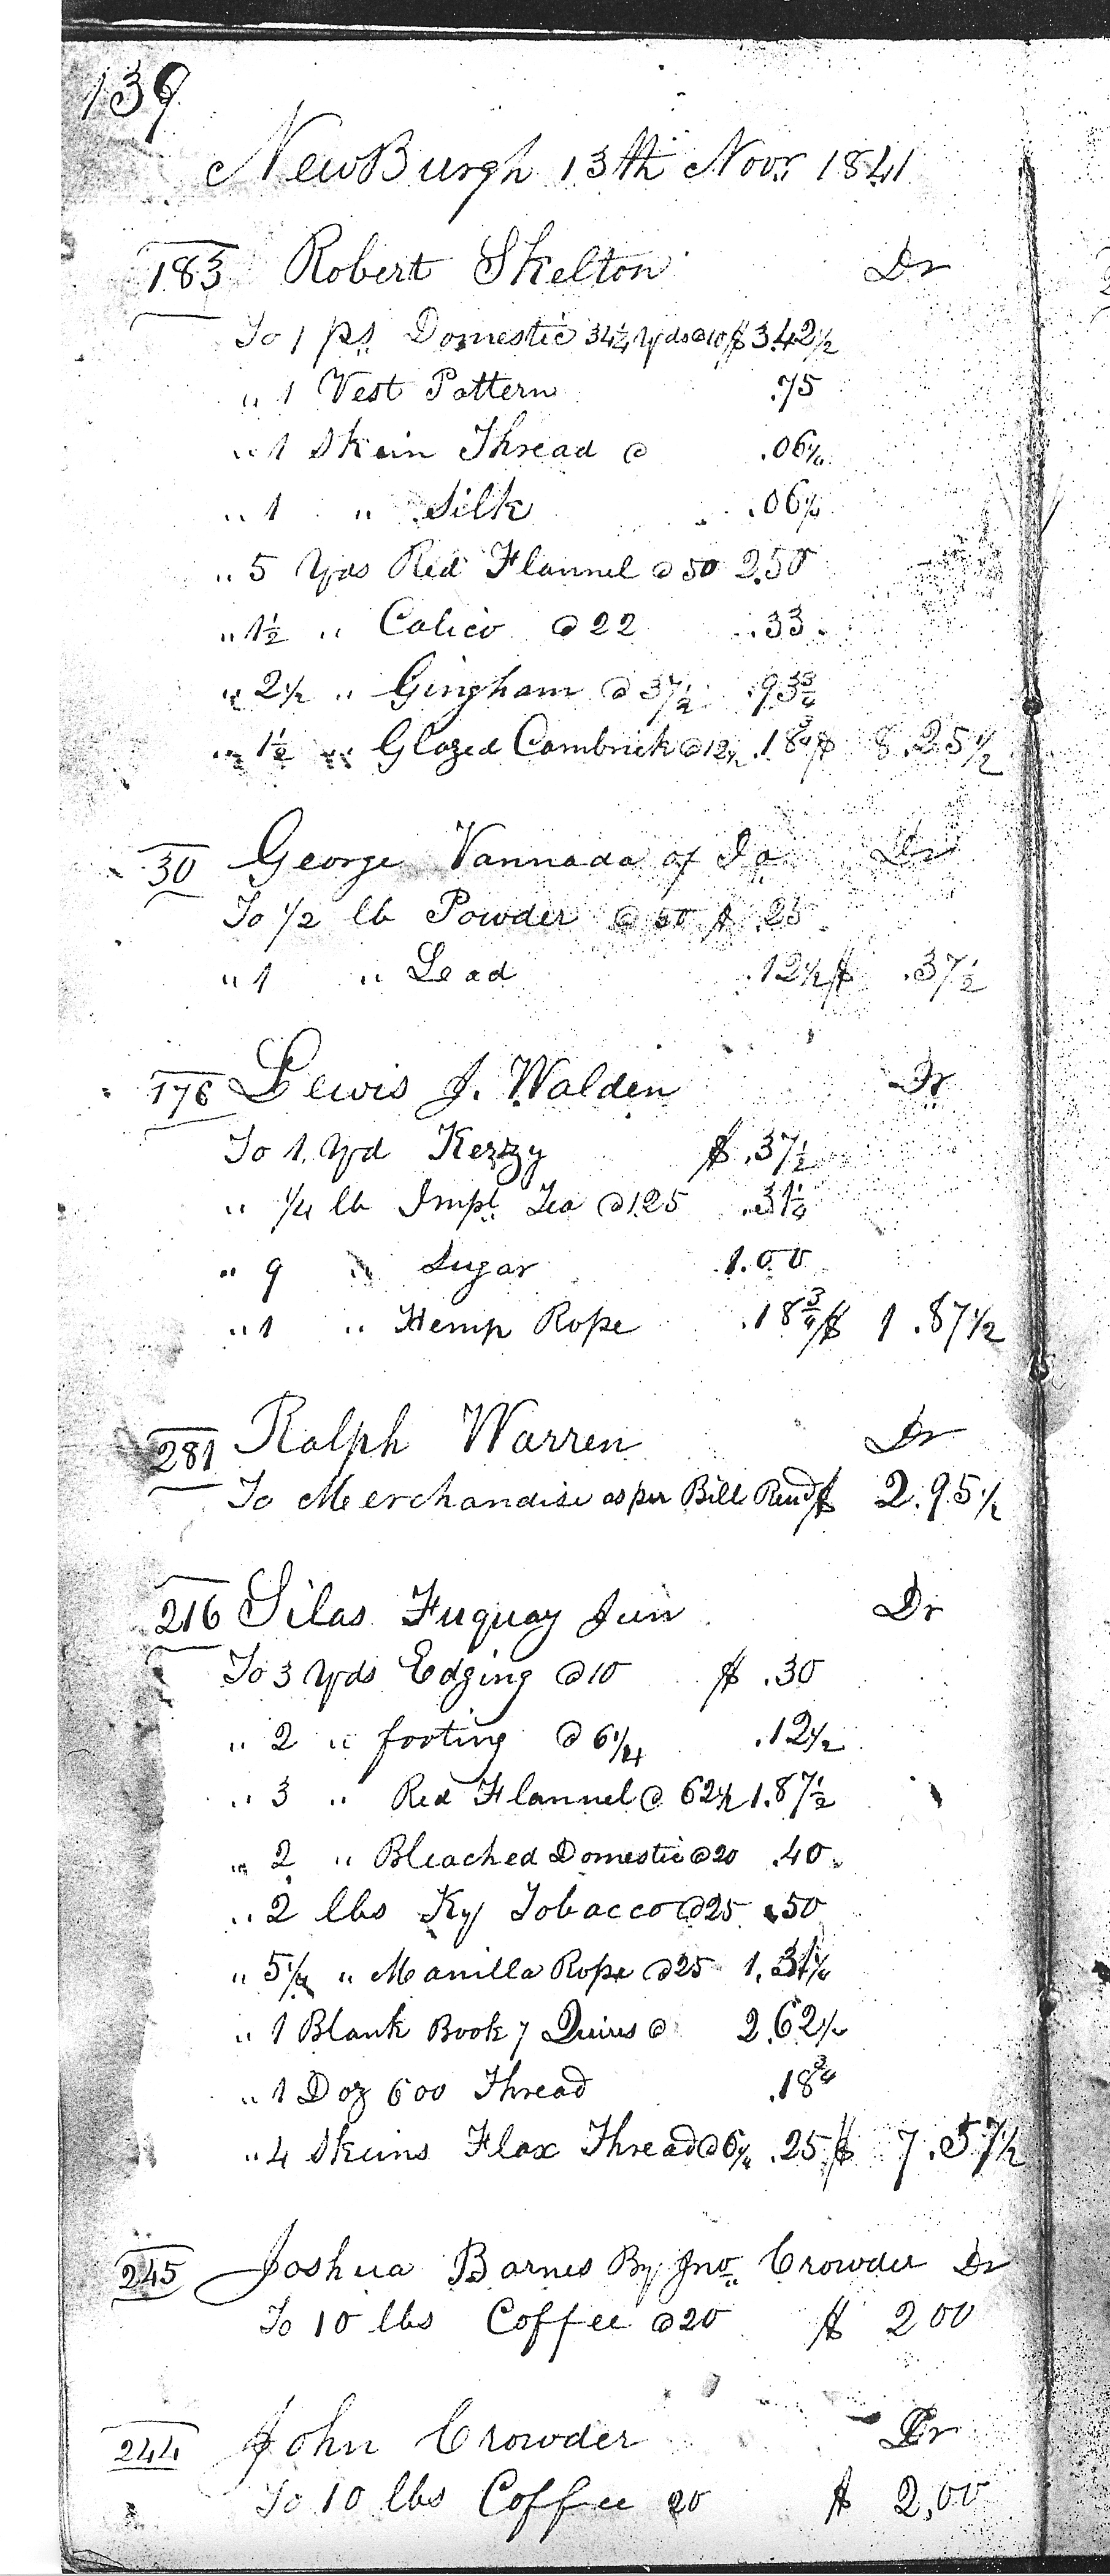 139
NewBurgh 13th Novr. 1841
183 Robert Skelton Dr
To 1 ps Domestic 34¼ Yds @ 10 $ 3.42½
" 1 Vest Pattern .75
" 1 Skein Thread @ .06¼
" 1 " Silk .06¼
" 5 Yds Red Flannel @ 50 2.50
" 1½ " Calico @ 22 .33
" 2½ " Gingham @ 37½ .93¾
" 1½ " Glazed Cambrick @ 12½ .18¾ $ 8.25½
30 George Vannada of Ia Dr
To ½ lb Powder @ 50 $ .25
" 1 " Lead .12½ $ .37½
176 Lewis J. Walden Dr
To 1 Yd Kerzy $ .37½
" ¼ lb Impl. Tea @ 1.25 .31¼
" 9 " Sugar 1.00
" 1 " Hemp Rope .18¾ $ 1.87½
281 Ralph Warren Dr
To Merchandise as per Bill Rend $ 2.95½
216 Silas Fuquay Jun Dr
To 3 Yds Edging @ 10 $ .30
" 2 " footing @ 6¼ .12½
" 3 " Red Flannel @ 62½ 1.87½
" 2 " Bleached Domestic @ 20 .40
" 2 lbs Ky Tobacco @ 25 .50
" 5¼ " Manilla Rope @ 25 1.31¼
" 1 Blank Book 7 Quires @ 2.62½
" 1 Doz 600 Thread .18¾
" 4 Skeins Flax Thread @ 6¼ .25 $ 7.57½
245 Joshua Barnes By Jno. Crowder Dr
To 10 lbs Coffee @ 20 $ 2 00
244 John Crowder Dr
To 10 lbs Coffee 20 $ 2,00